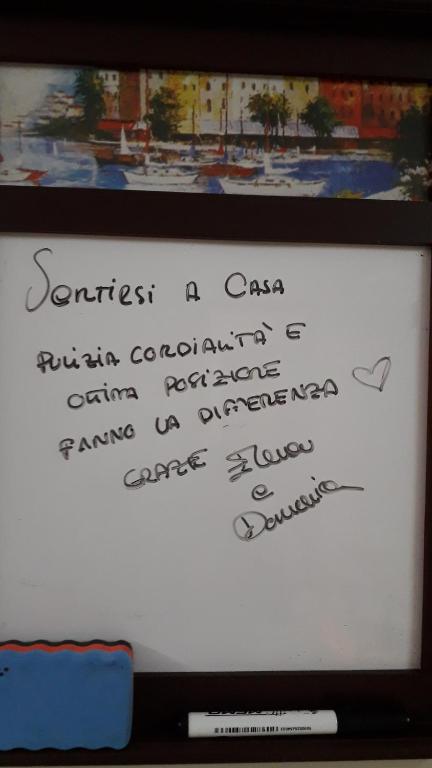 Sentirsi a Casa
PULIZIA CORDIALITÀ E
OTTIMA POSIZIONE
FANNO LA DIFFERENZA
GRAZIE
e